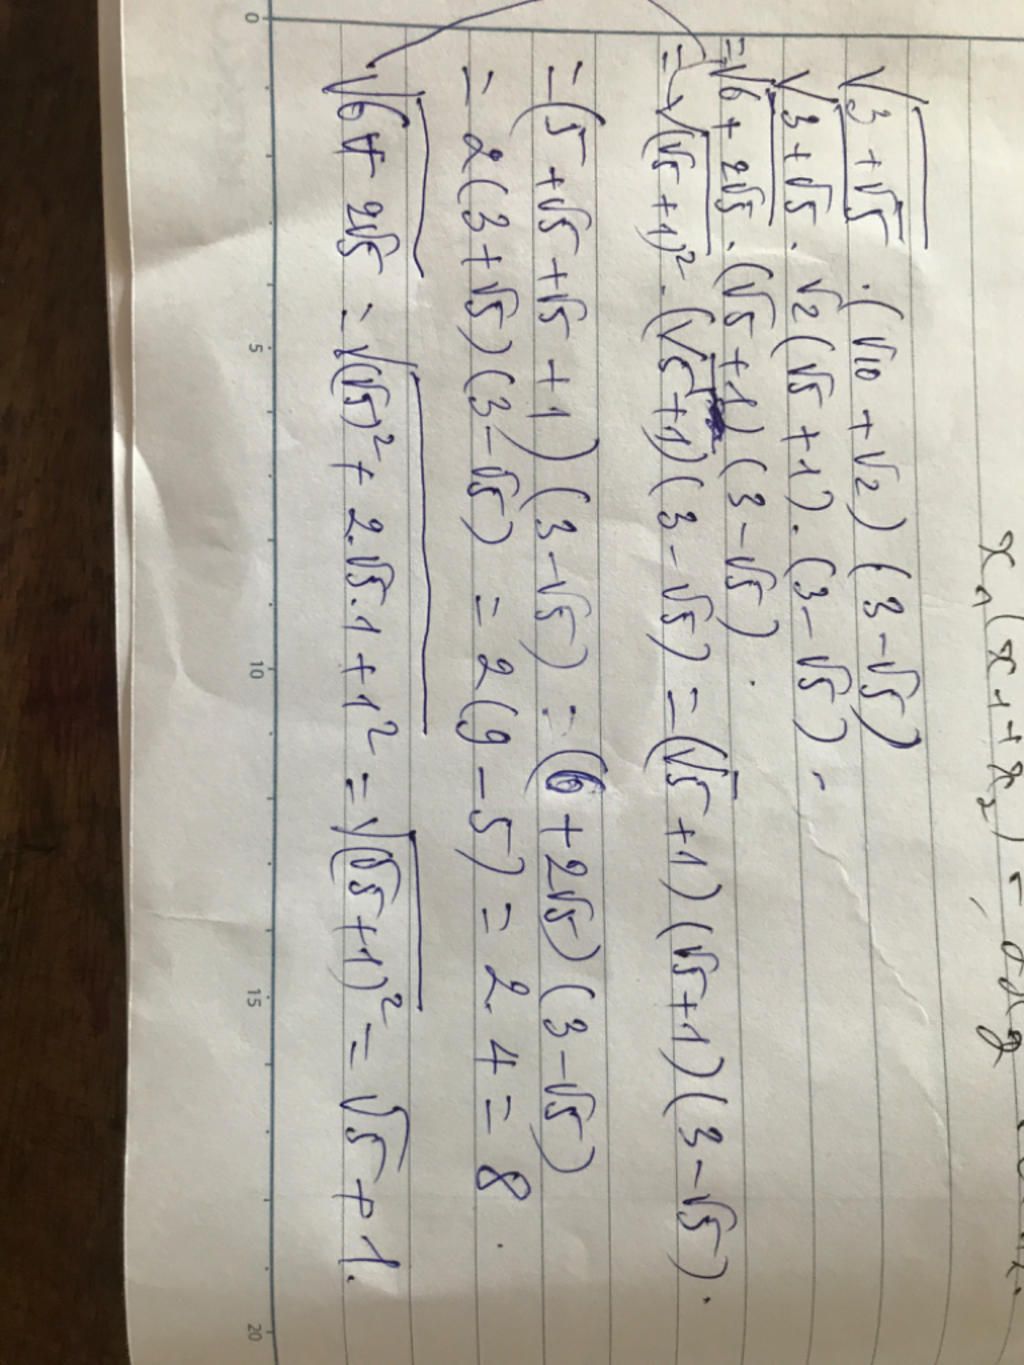 x₁(x₁+x₂)
√(3+√5) . (√10 + √2) (3-√5)
√(3+√5) . √2(√5 + 1) . (3-√5) .
= √(6 + 2√5) . (√5 + 1) (3-√5) .
= √((√5 + 1)²) . (√5 + 1)(3-√5) = (√5 + 1)(√5 + 1)(3-√5) .
= (5 + √5 + √5 + 1) (3-√5) = (6 + 2√5) (3-√5)
= 2(3 + √5) (3-√5) = 2(9 - 5) = 2.4 = 8 .
√(6 + 2√5) = √((√5)² + 2.√5.1 + 1²) = √((√5 + 1)²) = √5 + 1.
0 5 10 15 20